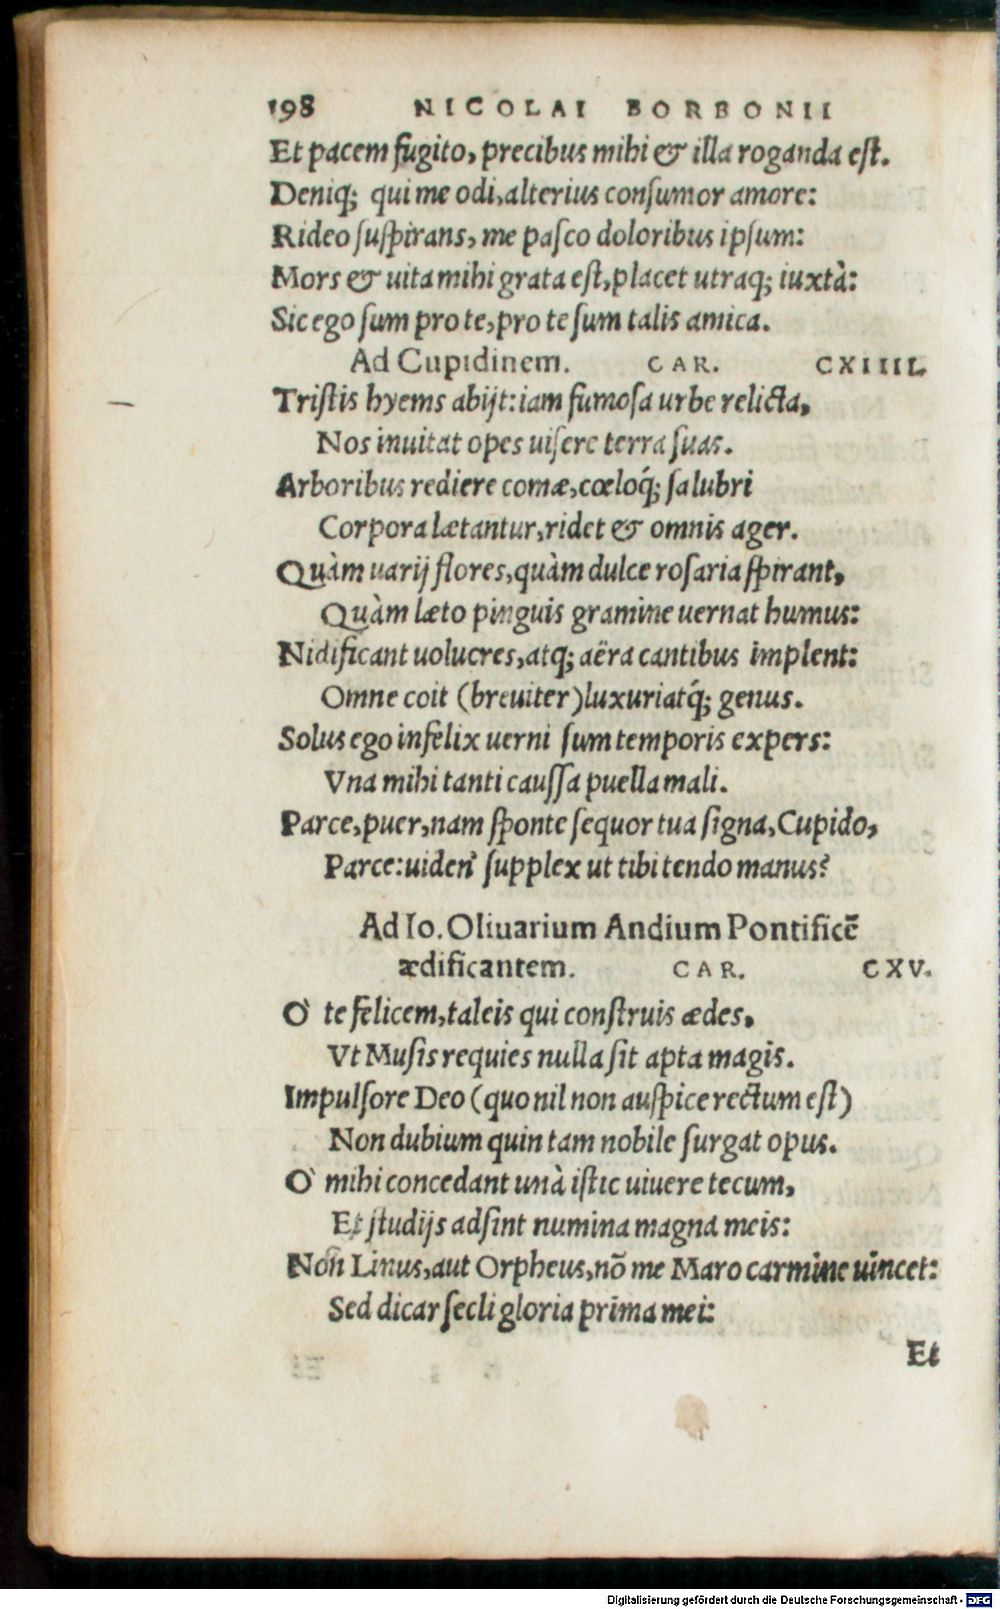 198 NICOLAI BORBONII
Et pacem fugito, precibus mihi & illa roganda est.
Deniq; qui me odi, alterius consumor amore:
Rideo suspirans, me pasco doloribus ipsum:
Mors & uita mihi grata est, placet utraq; iuxtà:
Sic ego sum pro te, pro te sum talis amica.
Ad Cupidinem. CAR. CXIIII.
Tristis hyems abijt: iam fumosa urbe relicta,
Nos inuitat opes uisere terra suas.
Arboribus rediere comæ, cœloq́; salubri
Corpora lætantur, ridet & omnis ager.
Quàm uarij flores, quàm dulce rosaria spirant,
Quàm læto pinguis gramine uernat humus:
Nidificant uolucres, atq; aëra cantibus implent:
Omne coit (breuiter) luxuriatq́; genus.
Solus ego infelix uerni sum temporis expers:
Vna mihi tanti caussa puella mali.
Parce, puer, nam sponte sequor tua signa, Cupido,
Parce: uiden' supplex ut tibi tendo manus?
Ad Io. Oliuarium Andium Pontificē
ædificantem. CAR. CXV.
O' te felicem, taleis qui construis ædes,
Vt Musis requies nulla sit apta magis.
Impulsore Deo (quo nil non auspice rectum est)
Non dubium quin tam nobile surgat opus.
O' mihi concedant unà istic uiuere tecum,
Et studijs adsint numina magna meis:
Non Linus, aut Orpheus, nō me Maro carmine uincet:
Sed dicar secli gloria prima mei:
Et
Digitalisierung gefördert durch die Deutsche Forschungsgemeinschaft - DFG